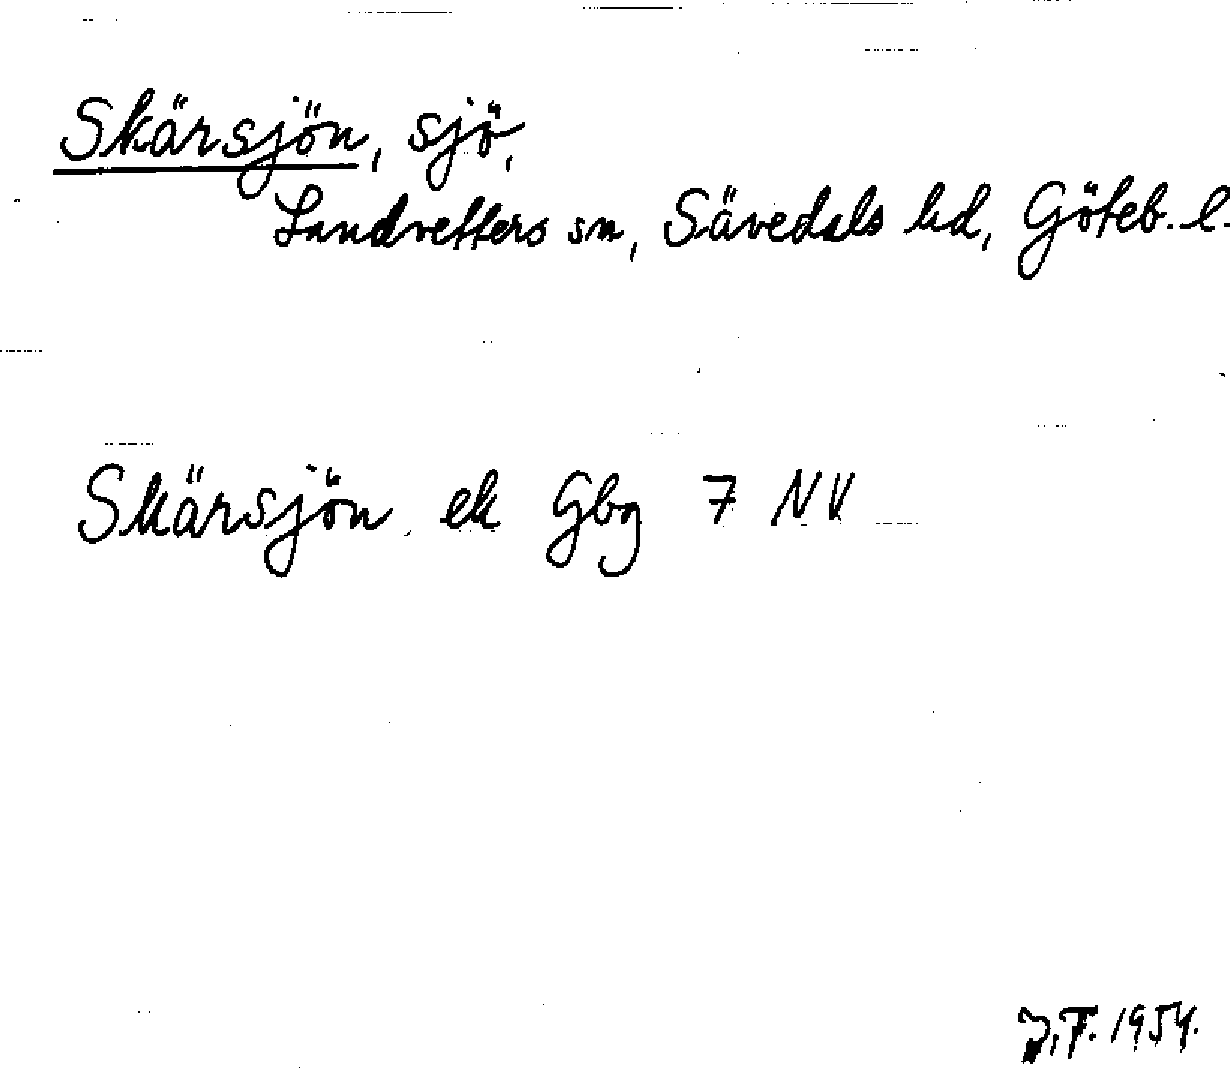 Skärsjön, sjö,
Landvetters sn, Sävedals hd, Göteb. l.
Skärsjön, ek Gbg 7 NV
J.F. 1954.